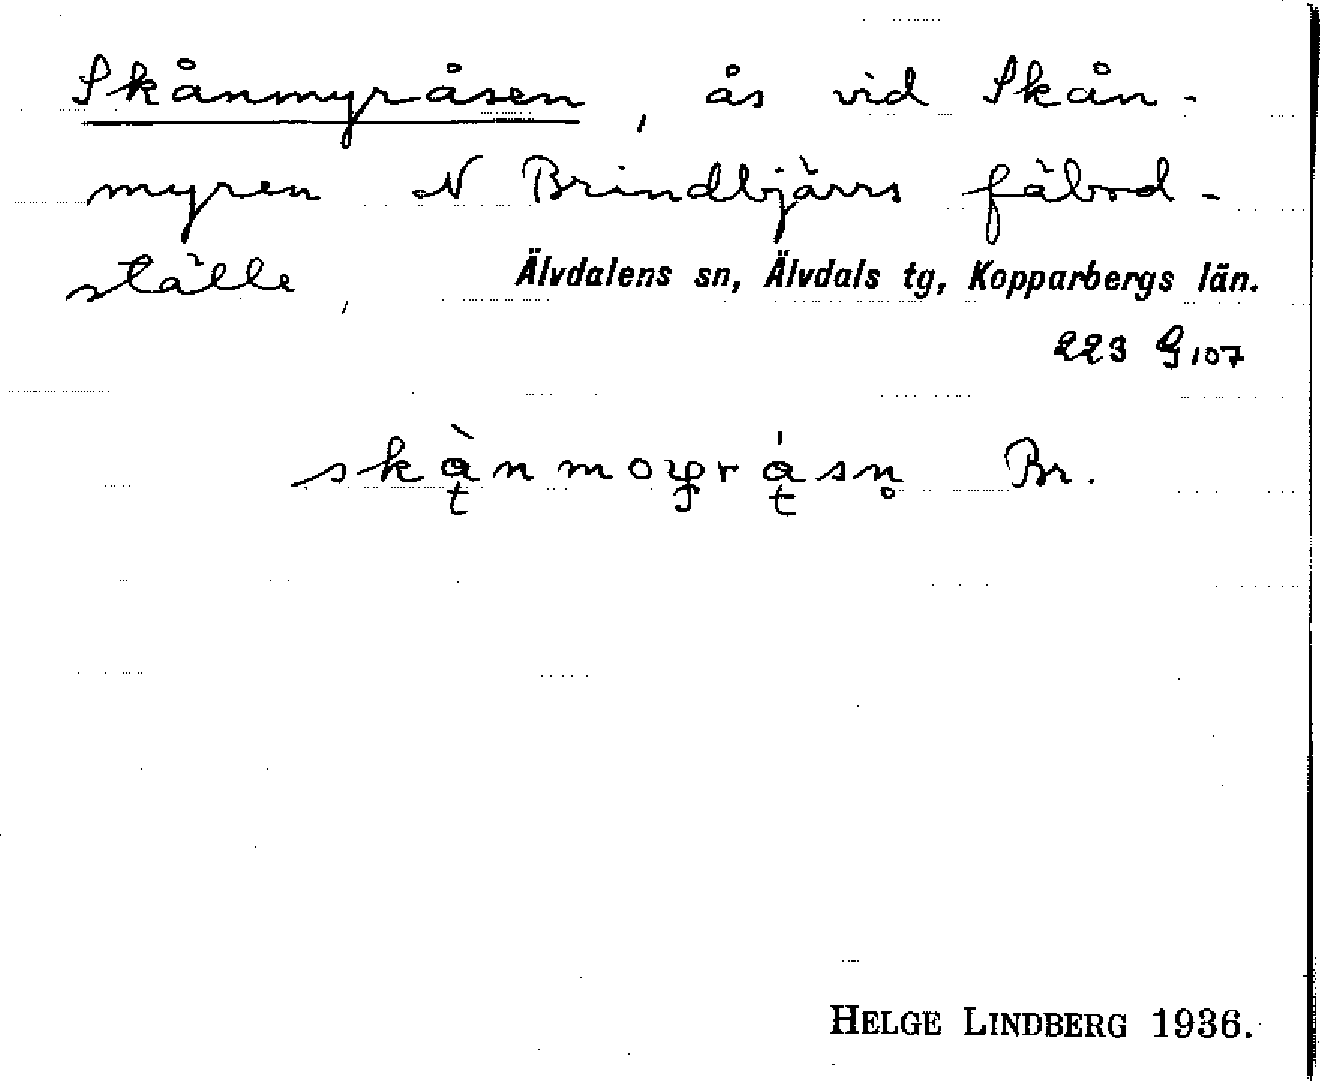 Skånmyråsen, ås vid Skån-
myren N Brindbjärrs fäbod-
ställe, Älvdalens sn, Älvdals tg, Kopparbergs län.
223 G 107
Br.
HELGE LINDBERG 1936.